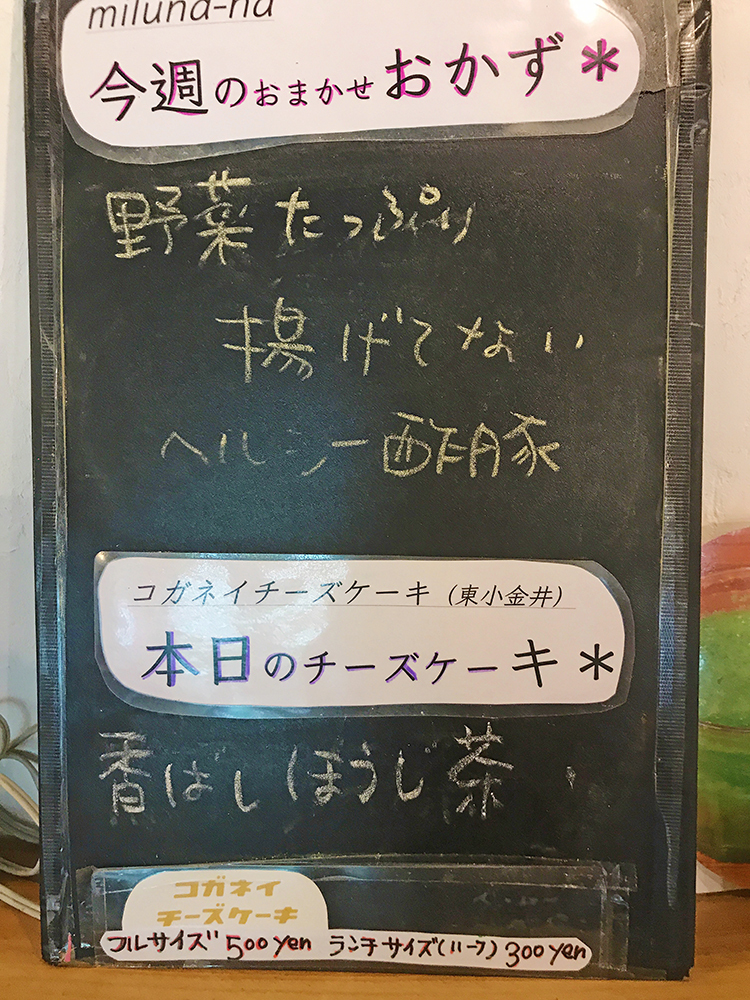 miluna-na
今週のおまかせおかず*
野菜たっぷり
揚げてない
ヘルシー酢豚
コガネイチーズケーキ (東小金井)
本日のチーズケーキ*
香ばしほうじ茶
コガネイ
チーズケーキ
フルサイズ 500yen ランチサイズ(ハーフ) 300yen